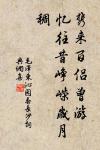 携来百侣曾游
忆往昔峥嵘岁月
稠
毛泽东沁园春长沙词